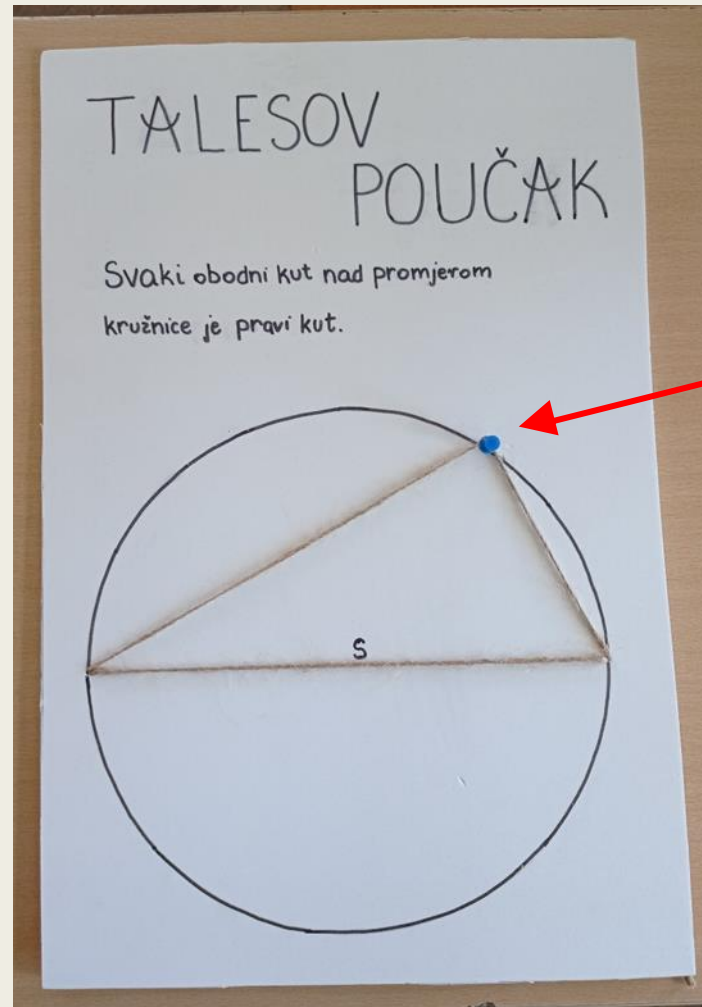 TALESOV
POUČAK
Svaki obodni kut nad promjerom
kružnice je pravi kut.
S